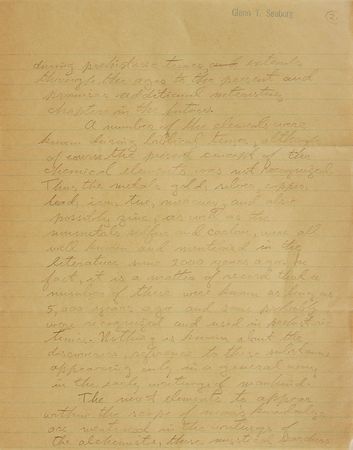 Glenn T. Seaborg
2.
during prehistoric times and extends
through the ages to the present and
promises additional interesting
chapters in the future.
A number of the elements were
known during biblical times, although
of course the present concept of the
chemical elements was not recognized.
Thus the metals gold, silver, copper,
lead, iron, tin, mercury, and also
possibly zinc, as well as the
nonmetals sulfur and carbon, were all
well known and mentioned in the
literature some 2000 years ago. In
fact, it is a matter of record that a
number of these were known as long as
5,000 years ago and some probably
were recognized and used in prehistoric
times. Nothing is known about the
discoverers, reference to these substances
appearing only in a general way
in the early writings of mankind.
The next elements to appear
within the scope of man's knowledge
are mentioned in the writings of
the alchemists, those mystical